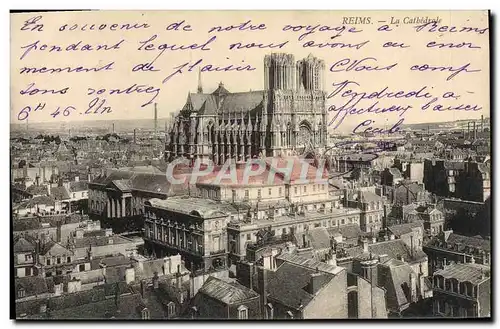 REIMS. — La Cathédrale
En souvenir de notre voyage à Reims
pendant lequel nous avons eu énor
mément de plaisir Nous comp
tons rentrer Vendredi à
6h 45m affectueux baiser
Cécile
CPARAMA